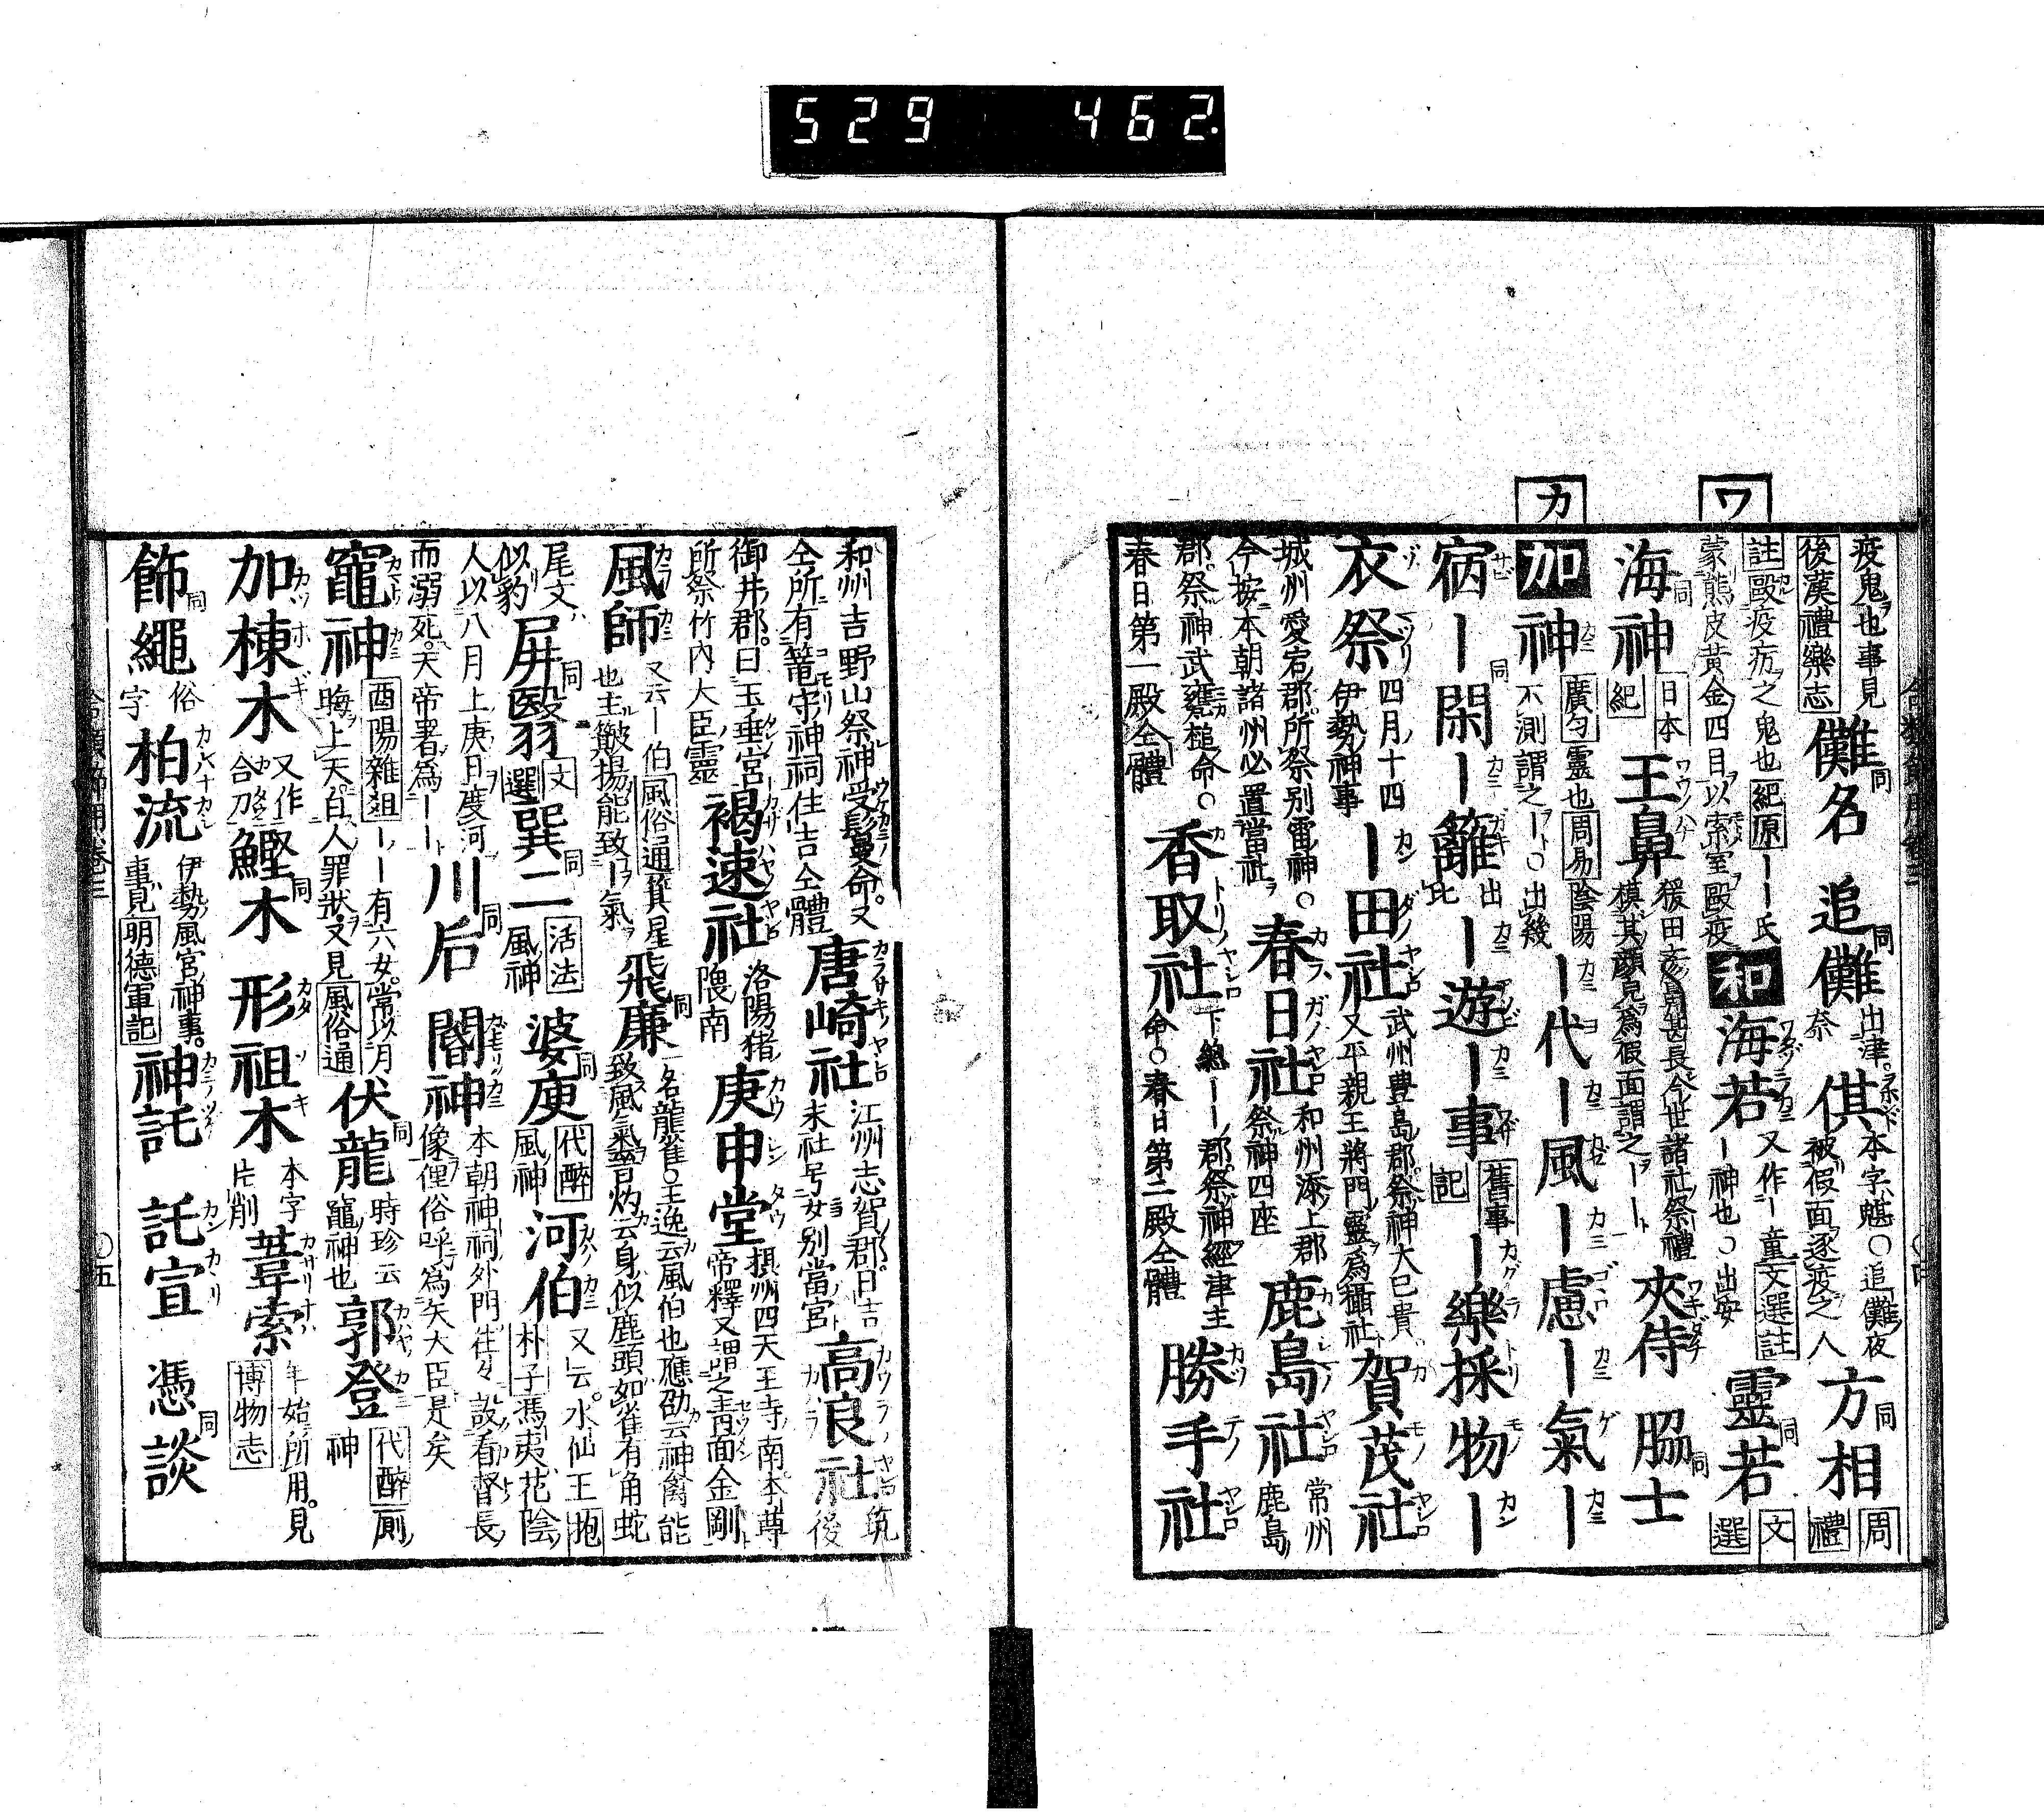 529 462
ワ
カ
疫鬼也事見後漢禮樂志 儺名 同 追儺 同 出津奈 倛 本字䫏○追儺夜被假面逐疫之人 方相 同 周禮
註毆疫疫之鬼也 紀原 ーー氏蒙熊皮黄金四目以索室毆疫 和 海若 又作ー童 文選註 ー神也○出安 靈若 同 文選
海神 同 日本紀 王鼻 猨田彦鼻甚長今世諸社祭禮模其顔見爲假面謂之ーー 夾侍 脇士 同
加 神 廣匀 靈也 周易 陰陽不測謂之ー○出幾 ー代ー風ー慮ー氣ー
宿ー閑ー籬 出比 ー遊ー事 舊事記 ー樂採物ー
衣祭 四月十四伊勢神事 ー田社 武州豊島郡祭神大已貴又平親王將門靈爲攝社 賀茂社
城州愛宕郡所祭別雷神○今按本朝諸州必置當社 春日社 和州添上郡祭神四座 鹿島社 常州鹿島
郡祭神武甕槌命○春日第一殿仝體 香取社 下總ーー郡祭神經津主命○春日第二殿仝體 勝手社
和州吉野山祭神受鬘命又仝所有篭守神祠住吉仝體 唐崎社 江州志賀郡日吉末社号女別當宮 高良社 筑後
御井郡曰玉垂宮所祭竹内大臣靈 褐速社 洛陽猪隈南 庚申堂 摂州四天王寺南本尊帝釋又謂之青面金剛
風師 又云ー伯 風俗通 箕星也主簸揚能致ー氣 飛廉 同 一名龍雀○王逸云風伯也應劭云神禽能致風氣晉灼云身似鹿頭如雀有角蛇
尾文似豹 屏翳 同 文選 巽二 同 活法 風神 婆庾 同 代醉 風神 河伯 又云水仙王 抱朴子 馮夷花陰
人以八月上庚日度河而溺死天帝署爲ーー 川后 同 閽神 本朝神祠外門往々設看督長像俚俗呼爲矢大臣是矣
竈神 酉陽雜俎 ーー有六女常以月晦上天白人罪狀又見 風俗通 伏龍 同 時珍云竈神也 郭登 代醉 厠神
加棟木 又作合刀 鰹木 同 形祖木 本字片削 葦索 年始所用見 博物志
飾繩 同 俗字 柏流 伊勢風宮神事事見 明德軍記 神託 託宣 憑談 同
五